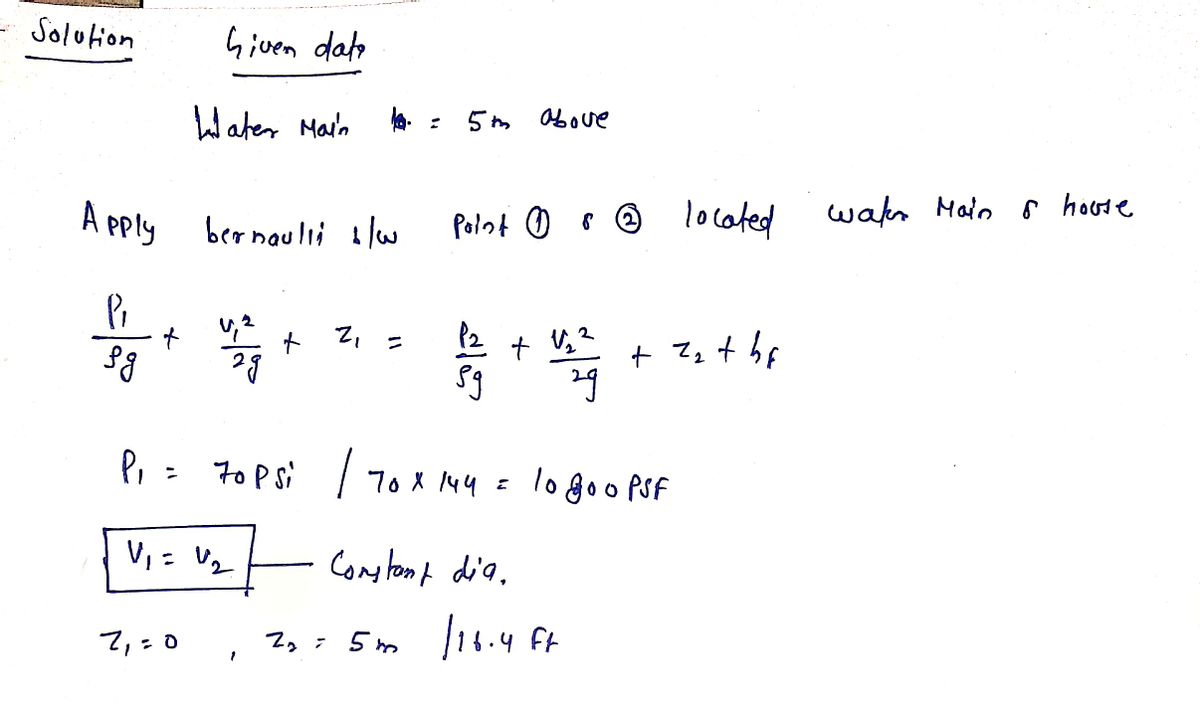 Solution Given data
Water Main = 5m above
Apply bernaulii b/w Point ① & ② located water Main & house
P₁/ρg + V₁²/2g + Z₁ = P₂/ρg + V₂²/2g + Z₂ + hf
P₁ = 70 Psi / 70 x 144 = 10800 PSF
V₁ = V₂ — Constant dia.
Z₁ = 0 , Z₂ = 5m / 16.4 Ft